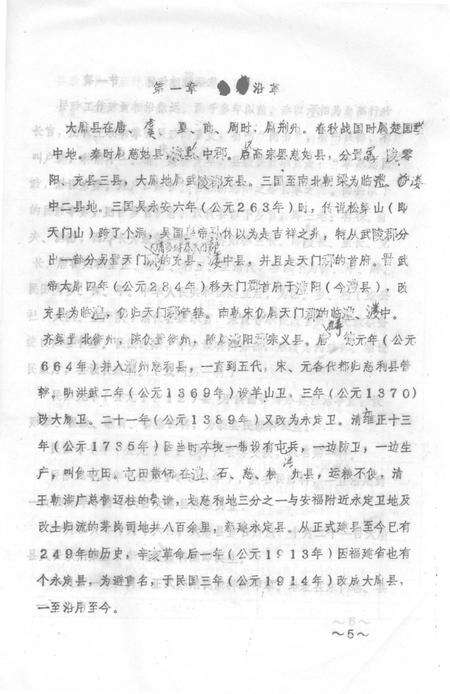 第一章 沿革
大庸县在唐、虞、夏、商、周时，属荆州。春秋战国时属楚国黔
中地。秦时属慈姑县，黔中郡。后高宗罢慈姑县，分置 零
阳、充县三县，大庸地属武陵郡充县。三国至南北朝梁为临澧、溇
中二县地。三国吴永安六年（公元263年）时，传说松梁山（即
天门山）跨了个洞，吴国 帝孙休以为是吉祥之兆，特从武陵郡分
出一部分另置天门郡的充县、溇中县，并且是天门郡的首府。晋武
帝太康四年（公元284年）移天门郡首府于澧阳（今澧县），改
充县为临澧，仍归天门郡管辖。南朝宋仍属天门郡的临澧、溇中。
齐 置北衡州，陈仍置衡州，隋属澧阳郡崇义县。唐麟德元年（公元
664年）并入澧州慈利县，一直到五代，宋、元各代都归慈利县管
辖。明洪武二年（公元1369年）设羊山卫，三年（公元1370）
改大庸卫。二十一年（公元1389年）又改为永定卫。清雍正十三
年（公元1735年）因当时本境一带设有屯兵，一边防卫，一边生
产，叫做屯田。屯田散怀在澧、石、慈、桃 县，运粮不便，清
王朝湖广总督迈柱的奏请，划慈利地三分之一与安福附近永定卫地及
改土归流的茅岗司地共八百余里，新建永定县。从正式建县至今已有
249年的历史，辛亥革命后一年（公元1913年）因福建省也有
个永定县，为避重名，于民国三年（公元1914年）改成大庸县，
一至沿用至今。
～5～